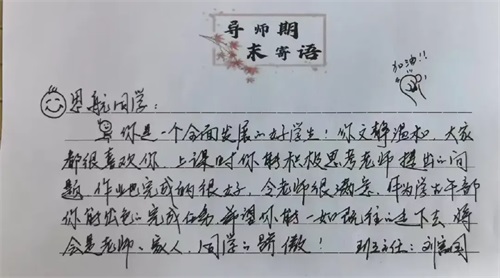 导师期
末寄语
加油!!
恩航同学:
你是一个全面发展的好学生!你文静温和,大家
都很喜欢你,上课时你能积极思考老师提出的问
题,作业也完成的很好,令老师很满意,作为学生干部
你能出色的完成任务,希望你能一如既往的走下去,将
会是老师、家人、同学的骄傲! 班主任:刘